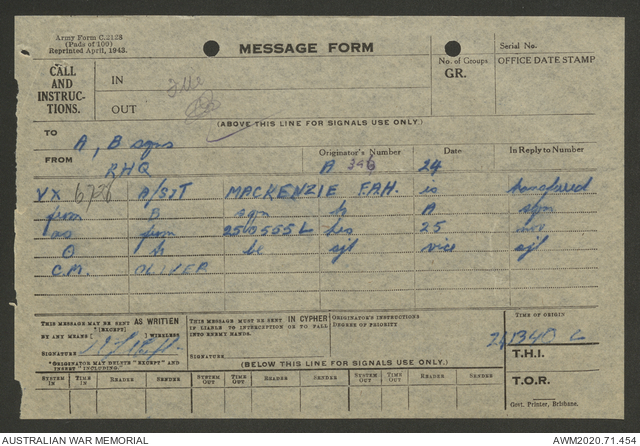 Army Form C.2128
(Pads of 100)
Reprinted April, 1943.
MESSAGE FORM
Serial No.
CALL AND INSTRUC-TIONS.
IN
OUT
No. of Groups
GR.
OFFICE DATE STAMP
(ABOVE THIS LINE FOR SIGNALS USE ONLY)
TO A, B sqns
FROM RHQ
Originator's Number A 346
Date 24
In Reply to Number
VX 6726 A/SJT MACKENZIE F.P.H. is transferred
from B sqn to A sqn
as from 250555L hrs 25 nov
O to be sjt vice sjt
C.M. OLIVER
THIS MESSAGE MAY BE SENT AS WRITTEN
BY ANY MEANS [EXCEPT] WIRELESS
SIGNATURE
*ORIGINATOR MAY DELETE "EXCEPT" AND INSERT "INCLUDING."
THIS MESSAGE MUST BE SENT IN CYPHER
IF LIABLE TO INTERCEPTION OR TO FALL INTO ENEMY HANDS.
SIGNATURE
ORIGINATOR'S INSTRUCTIONS
DEGREE OF PRIORITY
TIME OF ORIGIN
241340 L
T.H.I.
T.O.R.
(BELOW THIS LINE FOR SIGNALS USE ONLY.)
SYSTEM IN TIME IN READER SENDER SYSTEM OUT TIME OUT READER SENDER SYSTEM OUT TIME OUT READER SENDER
Govt. Printer, Brisbane.
AUSTRALIAN WAR MEMORIAL
AWM2020.71.454